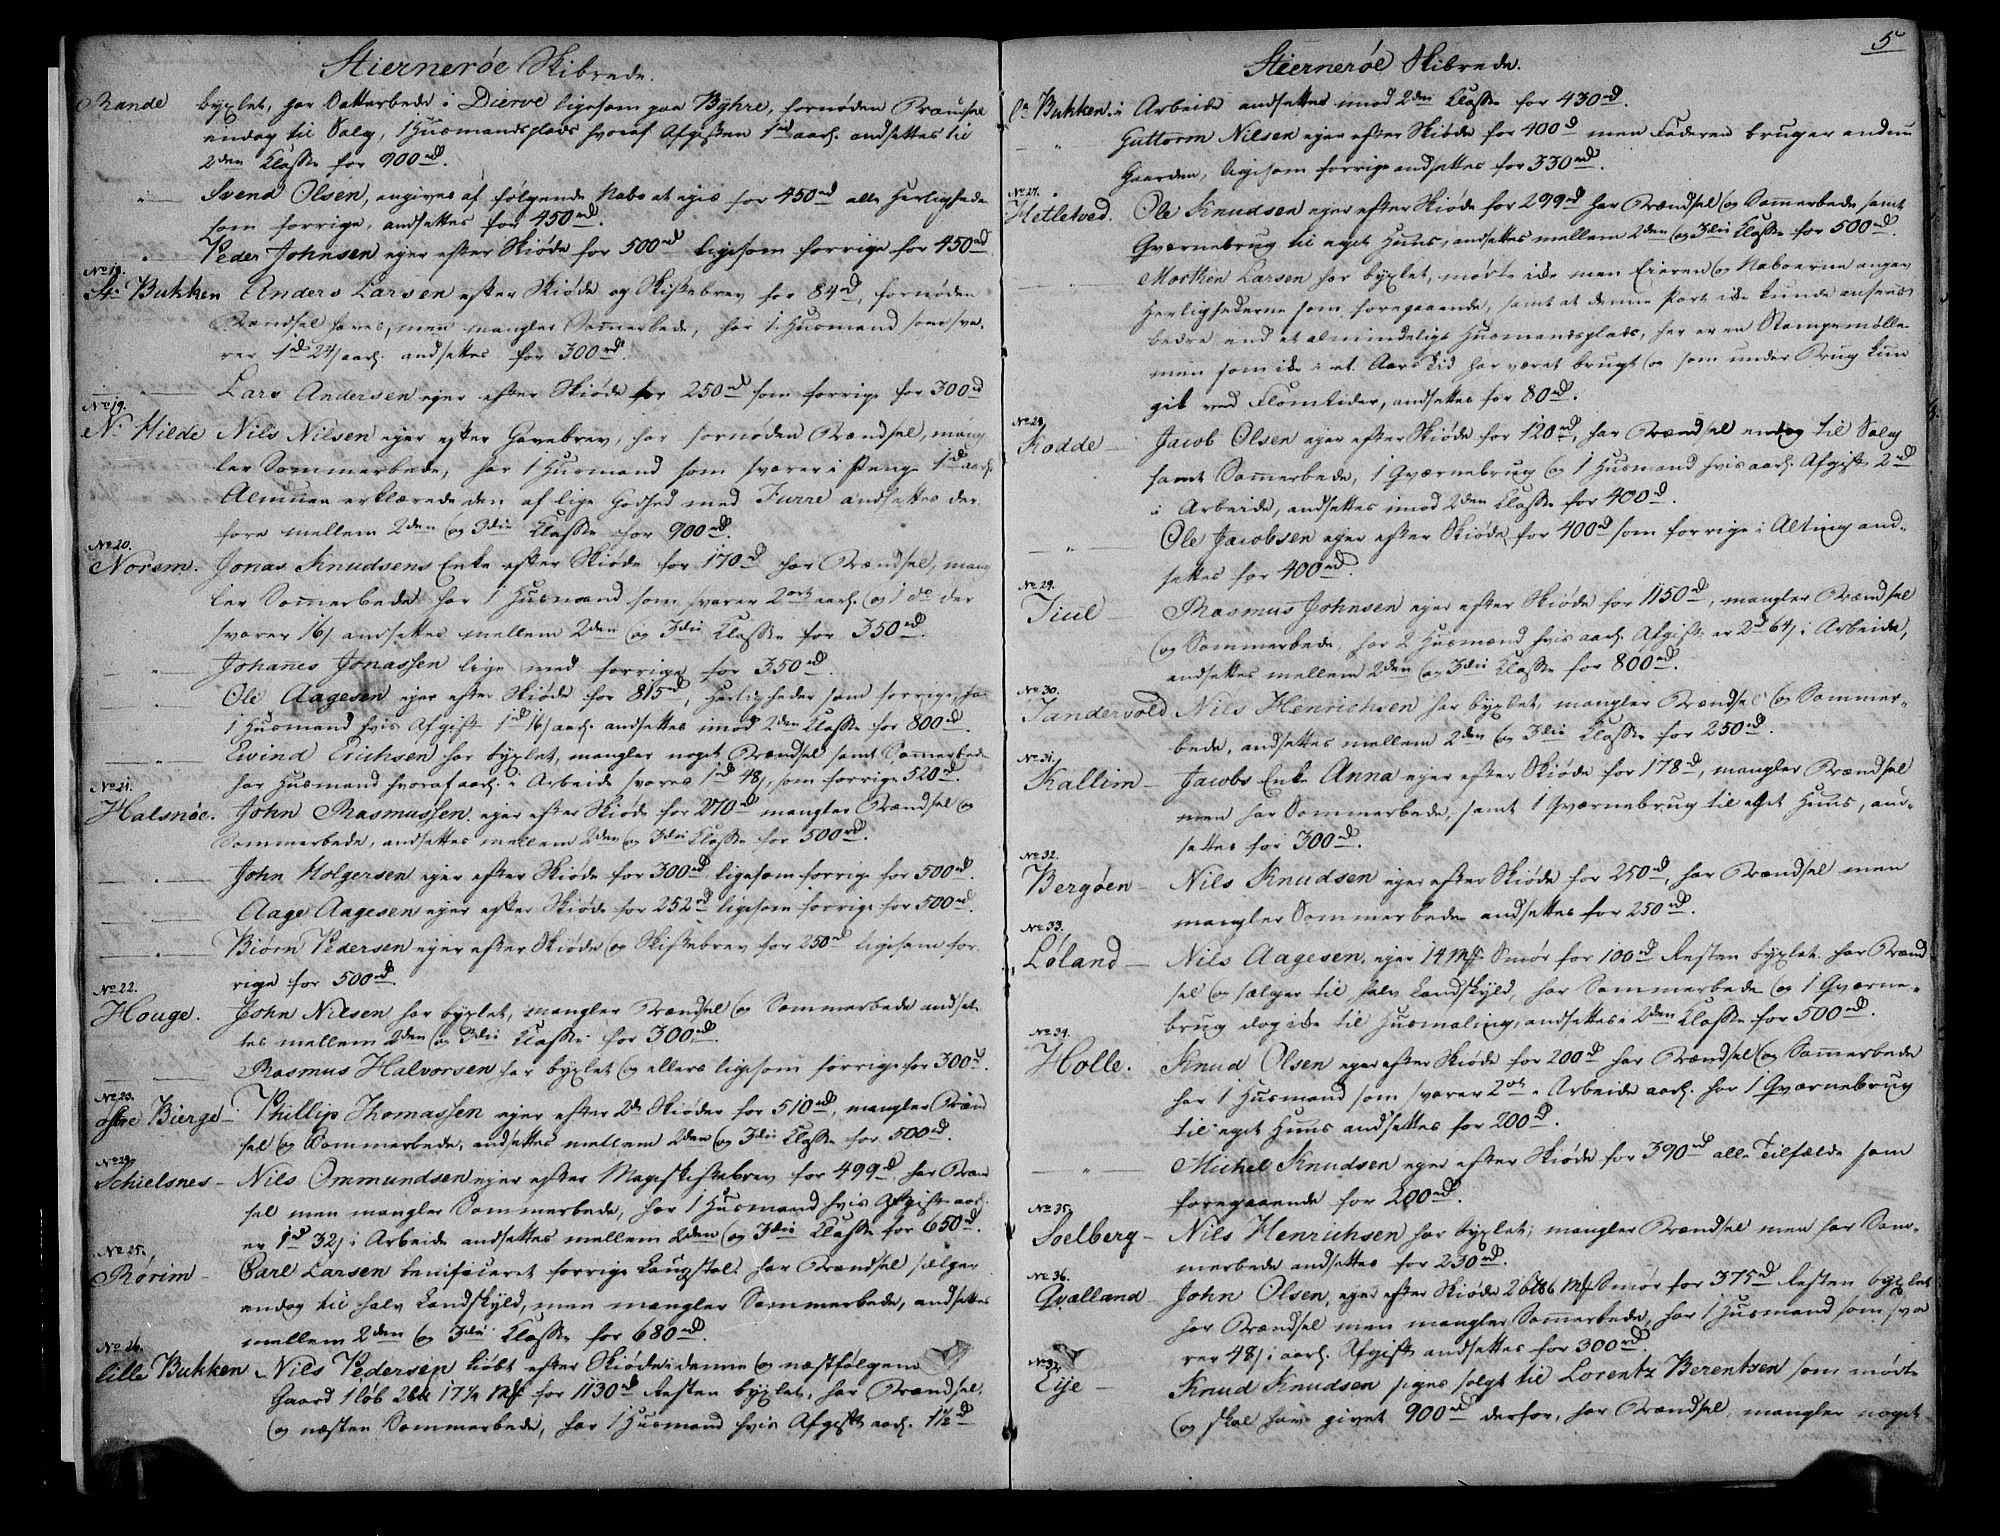 Stiernerøe Skibrede.
Rande byxlet, har Sætterbede i Dierve ligesom paa Byhre, fornøden Brændsel
endog til Salg, 1 Huusmandsplads hvoraf Afgiften 1rd aarl. andsettes til
2den Classe for 900rd.
Svend Olsen, angives af følgende Nabo at ejes for 450rd alle Herligheder
som forrige, andsettes for 450rd.
Peder Johnsen ejer efter Skiøde for 500rd ligesom forrige for 450rd
No 18.
St. Bukken Anders Larsen efter Skiøde og Skiftebrev for 84rd, fornøden
Brændsel haves, men mangler Sommerbede, har 1 Huusmand som sva-
rer 1rd 24s aarl. andsettes for 300rd.
Lars Andersen ejer efter Skiøde for 250rd som forrige for 300rd
No 19.
N. Hilde Nils Nilsen ejer efter Gavebrev, har fornøden Brændsel, mang
ler Sommerbede, har 1 Husmand som svarer i Penge 1rd aarl.
Almuen erklærede den af lige Godhed med Furre andsettes der
fore mellem 2den og 3die Classe for 900rd.
No 20.
Norem. Jonas Knudsens Enke efter Skiøde for 170rd har Brændsel, mang
ler Sommerbede har 1 Husmand som svarer 2ort aarl. og 1 do der
svarer 16s andsettes mellem 2den og 3die Classe for 350rd.
Johanes Jonassen lige med forrige for 350rd.
Ole Aagesen ejer efter Skiøde for 815rd, Herligheder som forrige, har
1 Husmand hvis Afgift 1rd 16s aarl. andsettes imod 2den Classe for 800rd.
Eivind Erichsen har byxlet, mangler noget Brændsel samt Sommerbede
har Husmand hvoraf aarl. i Arbeide svares 1rd 48s, som forrige 520rd.
No 21.
Halsnøe. John Rasmussen ejer efter Skiøde for 270rd mangler Brændsel og
Sommerbede, andsettes mellem 2den og 3die Classe for 500rd.
John Holgersen ejer efter Skiøde for 300rd ligesom forrige for 500rd.
Aage Aagesen ejer efter Skiøde for 252rd ligesom forrige for 500rd.
Biørn Pedersen ejer efter Skiøde og Skiftebrev for 250rd ligesom for
rige for 500rd
No 22.
Houge. John Nilsen har byxlet, mangler Brændsel og Sommerbede andset
tes mellem 2den og 3die Classe for 300rd.
Rasmus Halvorsen har byxlet og ellers ligesom forrige for 300rd.
No 23.
østre Bierge Phillip Thomassen ejer efter 2de Skiøder for 510rd, mangler Brænd
sel og Sommerbede, andsettes mellem 2den og 3die Classe for 500rd.
No 24.
Schielsnes Nils Ommundsen ejer efter Mageskiftebrev for 499rd har Bræn
sel men mangler Sommerbede, har 1 Husmand hvis Afgift aarl.
er 1rd 32s i Arbeide andsettes mellem 2den og 3die Classe for 650rd.
No 25.
Rørim Carl Larsen benificeret forrige har Brændsel sælger
endog til halv Landskyld, men mangler Sommerbede, andsettes
mellem 2den og 3die Classe for 680rd.
No 26.
lille Bukken Nils Pedersen kiøbt efter Skiøde denne og næstfølgende
Gaard 1 løb 2bll 17¼ Mk for 1130rd Resten byxlet, har Brændsel
og næsten Sommerbede, har 1 Husmand hvis Afgift aarl. 1½rd
5
Stiernerøe Skibrede.
l. Bukken. i Arbeide andsettes imod 2den Classe for 430rd.
Guttorm Nilsen ejer efter Skiøde for 400rd men Faderen bruger endnu
Gaarden, ligesom forrige andsettes for 330rd.
No 27.
Hetletved. Ole Knudsen ejer efter Skiøde for 299rd har Brændsel og Somerbede samt
Qværnebrug til eget Huus, andsettes mellem 2den og 3die Classe for 500rd.
Morthen Larsen har byxlet, mødte ikke men Eieren og Naboerne angav
Herlighederne som foregaaende, samt at denne Part ikke kunde ansees
bedre end et almindeligt Husmandsplads, her er en Stampemølle
men som ikke i et Aars Tid har været brugt og som under Brug kun
gik ved Flomtider, andsettes for 80rd.
No 28.
Kodde Jacob Olsen ejer efter Skiøde for 120rd, har Brændsel endog til Salg
samt Sommerbede, 1 Qværnebrug og 1 Husmand hvis aarl. Afgift 2rd
i Arbeide, andsettes imod 2den Classe for 400rd.
Ole Jacobsen ejer efter Skiøde for 400rd som forrige i Alting and-
settes for 400rd.
No 29.
Tiul Rasmus Johnsen ejer efter Skiøde for 1150rd, mangler Brændsel
og Sommerbede, har 2 Husmænd hvis aarl. Afgift er 2rd 64s i Arbeide,
andsettes mellem 2den og 3die Classe for 800rd.
No 30.
Tandervold Nils Henrichsen har byxlet, mangler Brændsel og Sommer-
bede, andsettes mellem 2den og 3die Classe for 250rd.
No 31.
Kallim Jacobs Enke Anna ejer efter Skiøde for 178rd, mangler Brændsel
men har Sommerbede, samt 1 Qværnebrug til eget Huus, and-
settes for 300rd.
No 32.
Bergøen Nils Knudsen ejer efter Skiøde for 250rd, har Brændsel men
mangler Sommerbede andsettes for 250rd.
No 33.
Løland Nils Aagesen, ejer 14 Mk Smør for 100rd Resten byxlet har Brænd
sel og sælger til halv Landskyld, har Sommerbede og 1 Qværne-
brug dog ikke til Husmaling, andsettes i 2den Classe for 500rd.
No 34.
Holle. Knud Olsen ejer efter Skiøde for 200rd har Brændsel og Somerbede
har 1 Husmand som svarer 2ort i Arbeide aarl. har 1 Qværnebrug
til eget Huus andsettes for 200rd.
Michel Knudsen ejer efter Skiøde for 390rd alle Tilfælde som
foregaaende for 200rd.
No 35.
Soelberg Nils Henrichsen har byxlet, mangler Brændsel men har Som-
merbede andsettes for 230rd.
No 36.
Qvalland John Olsen, ejer efter Skiøde 2bll 6 Mk Smør for 375rd Resten byxlet
har Brændsel men mangler Sommerbede, har 1 Husmand som sva
rer 48s i aarl. Afgift andsettes for 300rd.
No 37.
Eije Knud Knudsen siges solgt til Lorentz Berentsen som mødte
og skal have givet 900rd derfor, har Brændsel, mangler noget